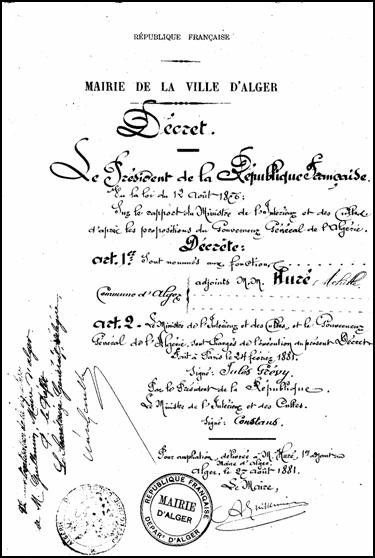 RÉPUBLIQUE FRANÇAISE
MAIRIE DE LA VILLE D'ALGER
Décret.
Le Président de la République Française.
Vu la loi du 12 Août 1876;
Sur le rapport du Ministre de l'Intérieur et des Cultes
d'après les propositions du Gouverneur Général de l'Algérie.
Décrète:
art. 1er Sont nommés aux fonctions
adjoints M.M. Huré, Achille
Commune d'Alger
art. 2 - Le Ministre de l'Intérieur et des Cultes, et le Gouverneur
Général de l'Algérie, sont chargés de l'exécution du présent Décret
Fait à Paris le février 1881.
Signé: Jules Grévy.
Par le Président de la République.
Le Ministre de l'Intérieur et des Cultes.
Signé: Constans.
Pour ampliation délivrée à M. Huré, 1er adjoint
Maire d'Alger.
Alger, le 27 août 1881.
Le Maire,
RÉPUBLIQUE FRANÇAISE
MAIRIE
D'ALGER
DÉPART. D'ALGER
de M. Guillemin, Maire d'Alger